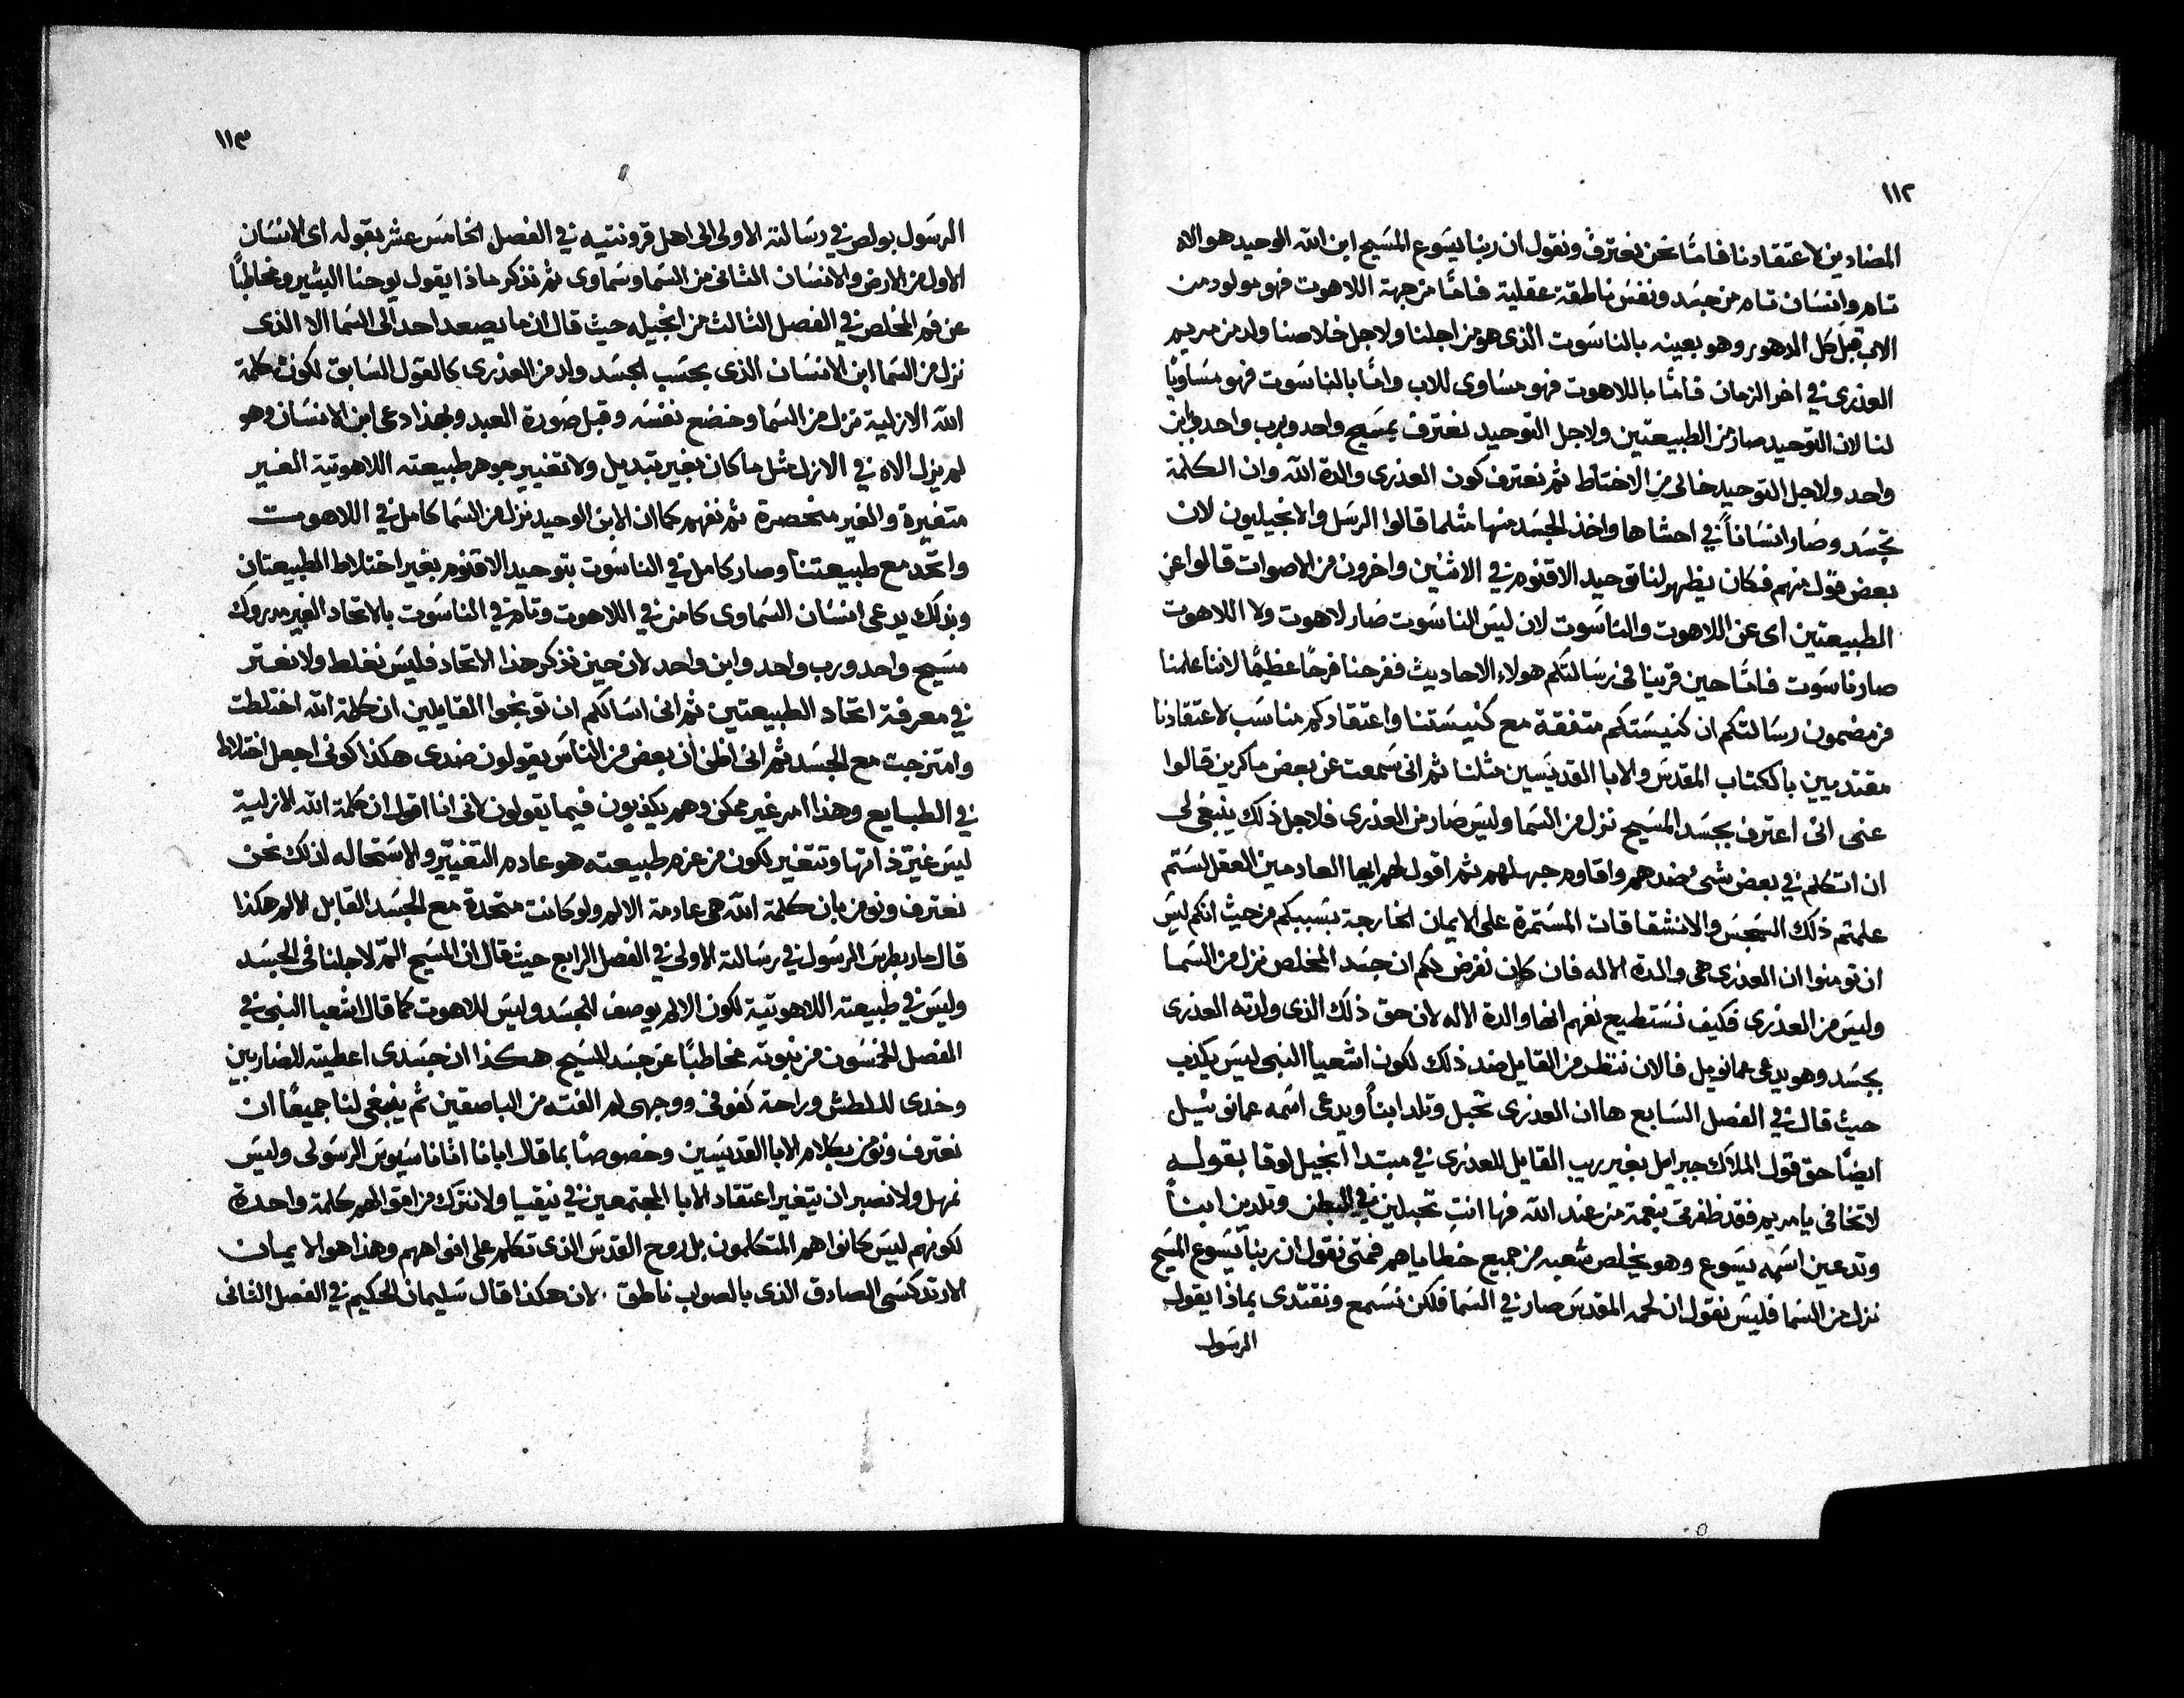 ١١٢
المضادين لاعتقادنا فامّا نحن نعترف ونقول ان ربنا يسوع المسيح ابن الله الوحيد هو الاه
تام وانسان تام من جسد ونفس ناطقة عقلية فامّا من جهة اللاهوت فهو مولود من
الاب قبل كل الدهور وهو بعينه بالناسوت الذى هو من اجلنا ولاجل خلاصنا ولد من مريم
العذرى في اخر الزمان فامّا باللاهوت فهو مساوى للاب وامّا بالناسوت فهو مساويًا
لنا لان التوحيد صار من الطبيعتين ولاجل التوحيد نعترف بمسيح واحد وبرب واحد وابن
واحد ولاجل التوحيد خالى من الاختلاط ثم نعترف كون العذرى والدة الله وان الكلمة
تجسد وصار انسانًا في احشاها واخذ الجسد منها مثلما قالوا الرسل والانجيليون لان
بعض قول منهم فكان يظهر لنا توحيد الاقنوم في الاثنين واخرون من الاصوات قالوا عن
الطبيعتين اى عن اللاهوت والناسوت لان ليس الناسوت صار لاهوت ولا اللاهوت
صار ناسوت فامّا حين قرينا فى رسالتكم هولاء الاحاديث ففرحنا فرحًا عظيمًا لاننا علمنا
من مضمون رسالتكم ان كنيستكم متفقة مع كنيستنا واعتقادكم مناسب لاعتقادنا
مقتديين بالكتاب المقدس والابا القديسين مثلنا ثم انى سمعت عن بعض ماكرين قالوا
عنى انى اعترف بجسد المسيح نزل من السما وليس صار من العذرى فلاجل ذلك ينبغى لى
ان اتكلم في بعض شىء ضدهم واقاوم جهلهم ثم اقول لهم ايها العادمين العقل لستم
علمتم ذلك السجس والانشقاقات المستمرة على الايمان الخارجة بسببكم من حيث انكم ليس
ان تومنوا ان العذرى هى والدة الاله فان كان نفرض لكم ان جسد المخلص نزل من السما
وليس من العذرى فكيف نستطيع نفهم انها والدة الاله لان حق ذلك الذى ولدته العذرى
بجسد وهو يدعى عمانويل فالان ننظر من القايل ضد ذلك لكون اشعيا النبى ليس يكذب
حيث قال في الفصل السابع ها ان العذرى تحبل وتلد ابنًا ويدعى اسمه عمانوئيل
ايضًا حق قول الملاك جبرايل بغير ريب القايل للعذرى في مبتدا انجيل لوقا بقوله
لا تخافى يا مريم فقد ظفرتى بنعمة من عند الله فها انتِ تحبلين في البطن وتلدين ابنًا
وتدعين اسمه يسوع وهو يخلص شعبه من جميع خطاياهم فمتى نقول ان ربنا يسوع المسيح
نزل من السما فليس نقول ان لحمه المقدس صار في السما فلكن نسمع ونقتدى بماذا يقول
الرسول
١١٣
الرسول بولص في رسالته الاولى الى اهل قرونتيه في الفصل الخامس عشر بقوله اى الانسان
الاول من الارض والانسان الثانى من السما وسماوى ثم نذكر ماذا يقول يوحنا البشير ومخاطبًا
عن فم المخلص في الفصل الثالث من انجيله حيث قال ان ما يصعد احد الى السما الا الذى
نزل من السما ابن الانسان الذى بحسب الجسد ولد من العذرى كالقول السابق لكون كلمة
الله الازلية نزل من السما وخضع نفسه وقبل صورة العبد وبهذا دعى ابن الانسان وهو
لم يزل الاه في الازل مثل ما كان بغير تبديل ولا تغيير جوهر طبيعته اللاهوتية الغير
متغيرة والغير منحصرة ثم نفهم كما ان الابن الوحيد نزل من السما كامل في اللاهوت
واتحد مع طبيعتنا وصار كامل في الناسوت بتوحيد الاقنوم بغير اختلاط الطبيعتان
وبذلك يدعى انسان السماوى كامن في اللاهوت وتام في الناسوت بالاتحاد الغير مدروك
مسيح واحد ورب واحد وابن واحد لان حين نذكر هذا الاتحاد فليس نغلط ولا نعتر
في معرفة اتحاد الطبيعتين ثم انى اسالكم ان توبخوا القايلين ان كلمة الله اختلطت
وامتزجت مع الجسد ثم انى اظن ان بعض من الناس يقولون ضدى هكذا كونى اجعل اختلاط
في الطبايع وهذا امر غير ممكن وهم يكذبون فيما يقولون لانى انا اقول ان كلمة الله الازلية
ليس غيّر ذاتها وتتغير لكون من عزم طبيعته هو عادم التغيير والاستحاله لذلك نحن
نعترف ونومن بان كلمة الله هى عادمة الالم ولو كانت متحدة مع الجسد القابل الالم هكذا
قال مار بطرس الرسول في رسالته الاولى في الفصل الرابع حيث قال ان المسيح المّ لاجلنا فى الجسد
وليس في طبيعته اللاهوتية لكون الالم يوصف للجسد وليس للاهوت كما قال اشعيا النبى في
الفصل الخمسون من نبوته مخاطبًا عن جسد المسيح هكذا ان جسدى اعطيته للضاربين
وخدى للطش وراحة كفوفى ووجهى لم الفته من الباصقين ثم ينبغى لنا جميعًا ان
نعترف ونومن بكلام الابا القديسين وخصوصًا بما قال ابانا اثاناسيوس الرسولى وليس
نمهل ولا نصبر ان يتغير اعتقاد الابا المجتمعين في نيقيا ولا نترك من اقوالهم كلمة واحدة
لكونهم ليس كانوا هم المتكلمون بل روح القدس الذى تكلم على افواههم وهذا هو الايمان
الارتدكسى الصادق الذى بالصواب ناطق . لان هكذا قال سليمان الحكيم في الفصل الثانى